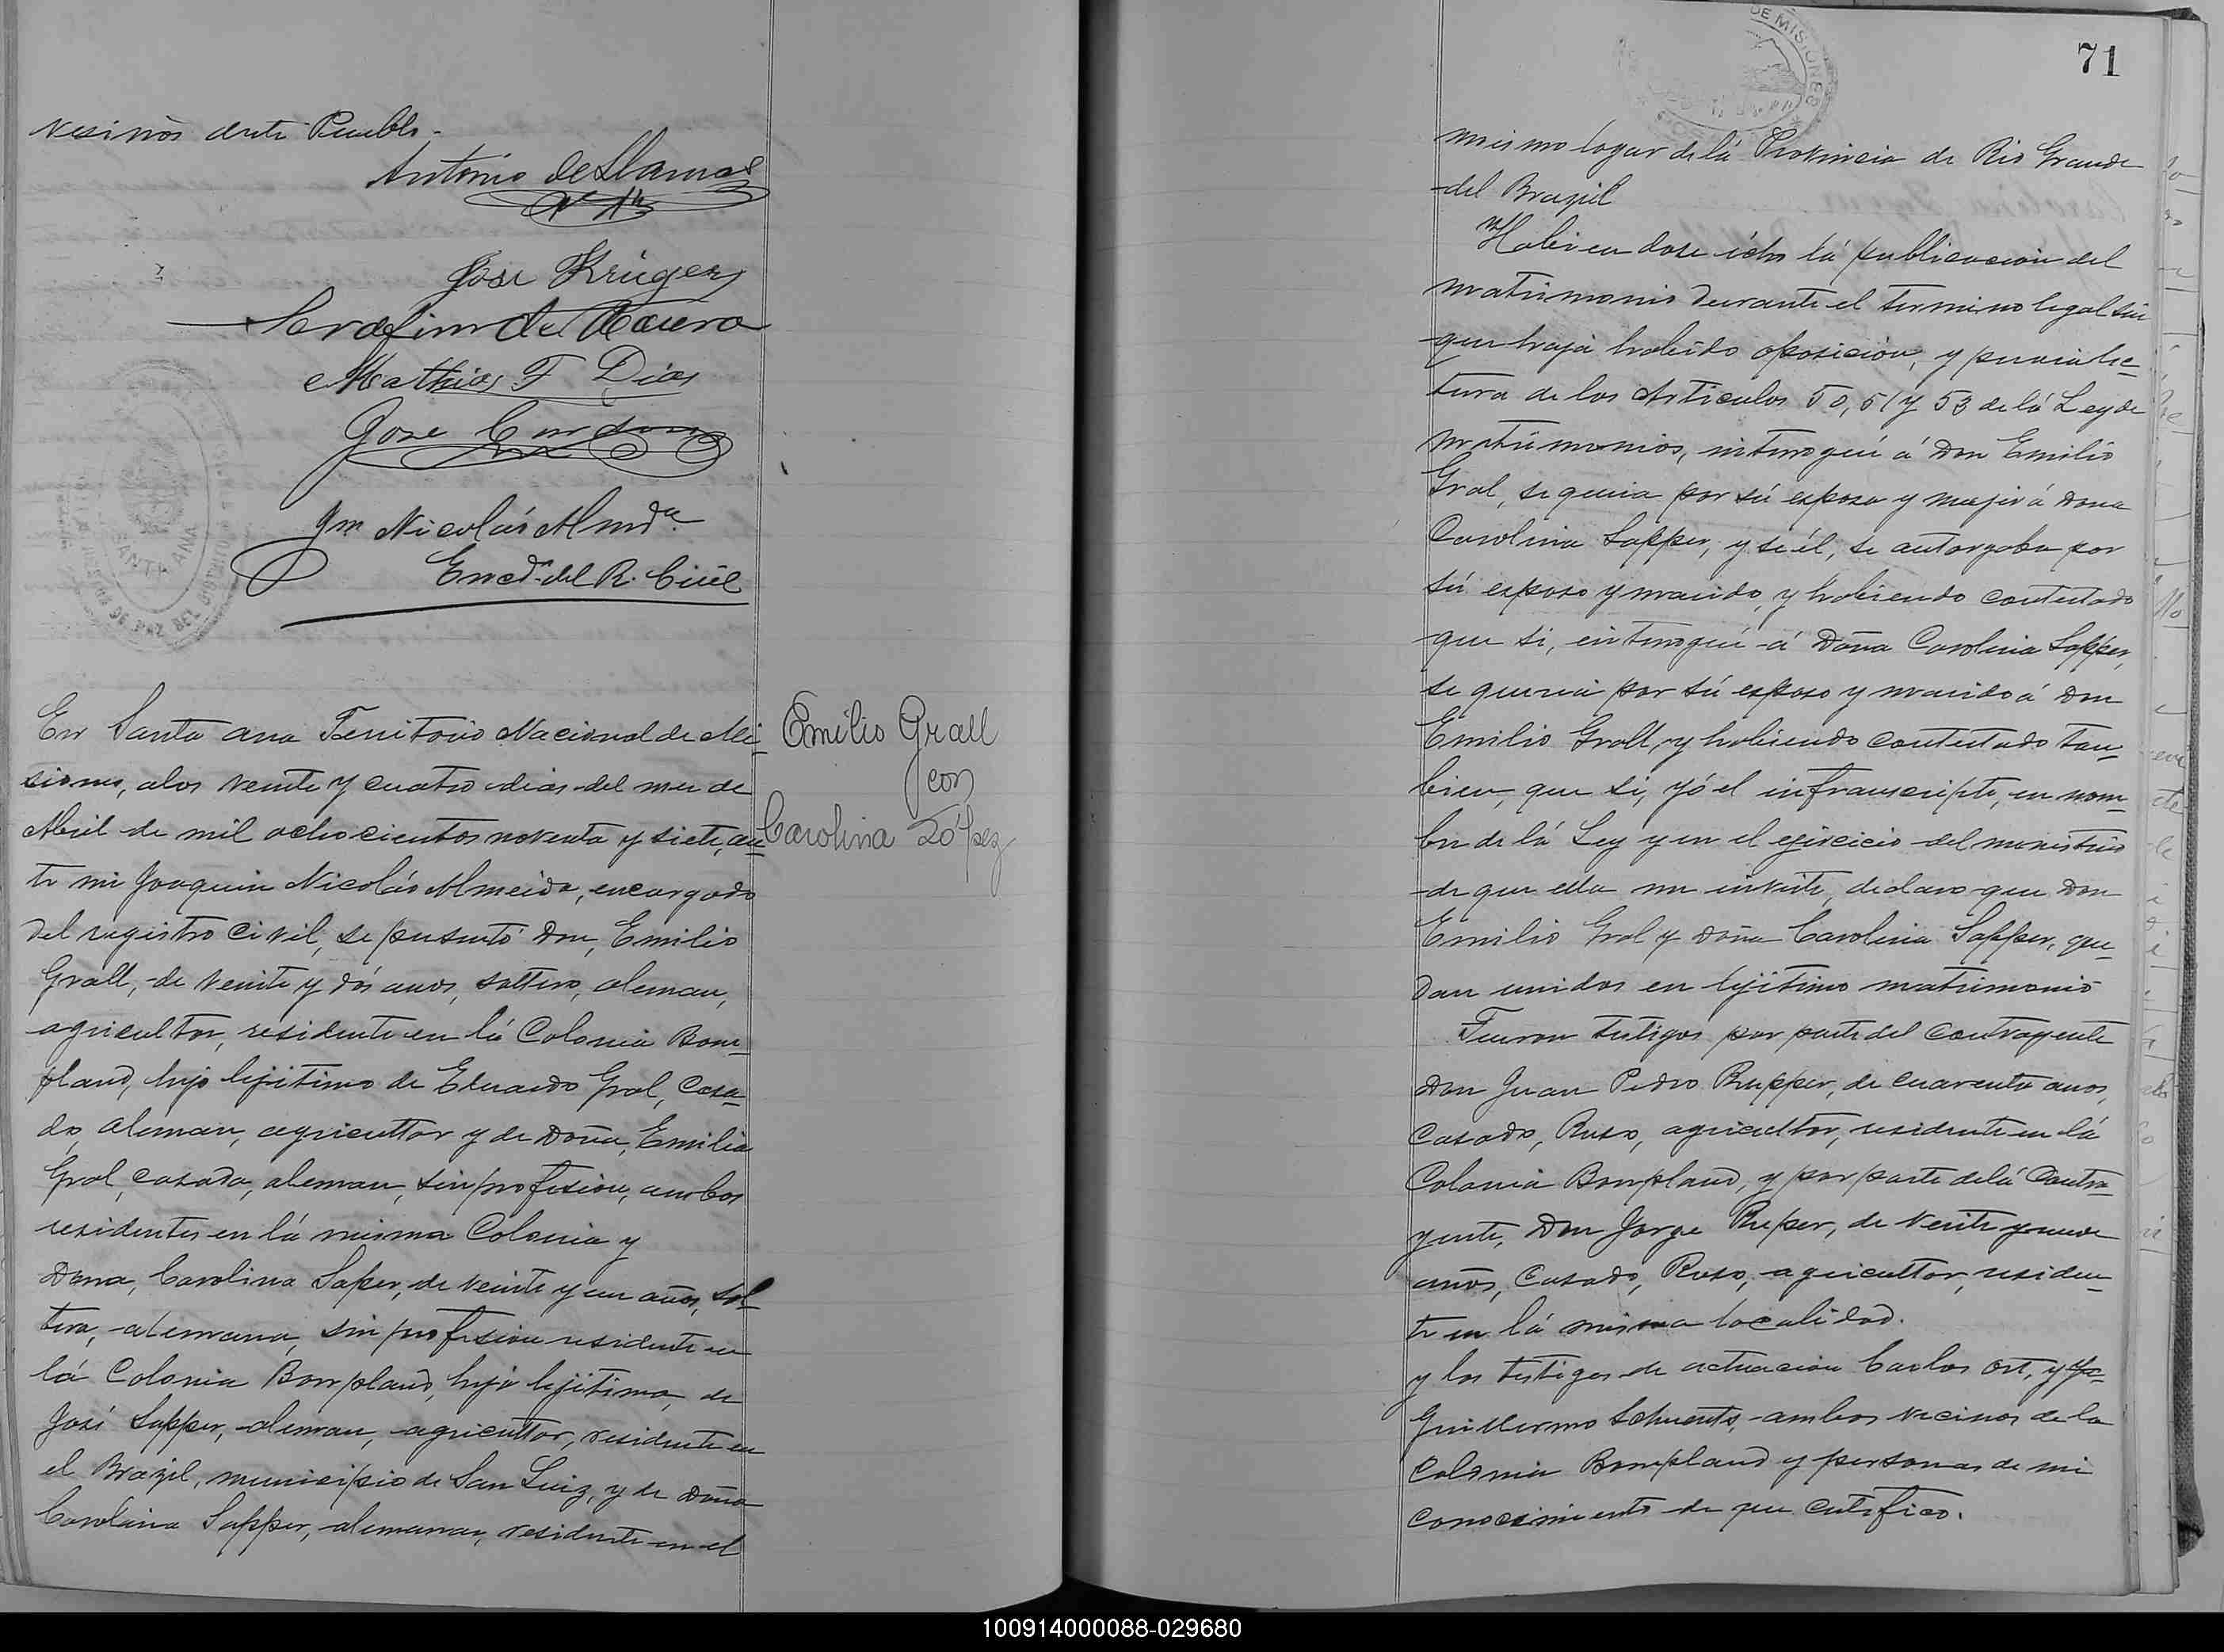 vesinos deste Pueblo.
Antonio de Llamas
Jose Krüger
Serafim de Moura
Mathias F Dias
Jose Cardozo
Jm Nicolás Almda
Encdo del R. Civil
SANTA ANA
En Santa ana Territorio Nacional de Mi-
siones, alos veinte y cuatro dias del mes de
Abril de mil ochocientos noventa y siete, an-
te mi Joaquin Nicolás Almeida, encargado
del registro civil, se presentó Don, Emilio
Grall, de veinte y dós anos, soltero, aleman,
agricultor, residente en lá Colonia Bom-
pland, hijo lejitimo de Eduardo Gral, casa-
do, aleman, agricultor y de Doña, Emilia
Gral, casada, aleman, sin profesion, ambos
residentes en lá misma Colonia y
Dona, Carolina Saper, de veinte y un años, sol-
tera, alemana, sin profesion residente en
lá Colonia Bompland, hija lejitima, de
José Sapper, aleman, agricultor, residente en
el Brazil, municipio de San Luiz, y de Doña
Carolina Sapper, alemana, residente en el
Emilio Grall
con
Carolina López
DE MISIONES
71
mismo logar de lá Provincia de Rio Grande
del Brazil
Habiendose écho lá publicacion del
matrimonio durante el termino legal sin
que haja habido oposicion, y previa lec-
tura de los Articulos 50, 51 y 53 de lá Ley de
matrimonios, interogué á Don Emilio
Gral, se queria por sú esposa y mujer á Dona
Carolina Sapper, y se él, se autorgaba por
sú esposo y marido, y habiendo contestado
que si, enterogué á Doña Carolina Sapper,
se queria por sú esposo y marido á Don
Emilio Grall, y habiendo contestado tan-
bien, que si, yó el infranscripto, en nom-
bre de lá Ley y en el ejercicio del ministerio
de que ella me inviste, declaro que Don
Emilio Gral y Doña Carolina Sapper, que-
dan unidos en lejitimo matrimonio
Fueron testigos por parte del Contrayente
Don Juan Pedro Rupper, de cuarenta anos,
casado, Ruso, agricultor, residente en lá
Colonia Bompland, y por parte de lá Contra-
yente, Don Jorge Ruper, de veinte y nueve
anos, casado, Ruso, agricultor, residen-
te en lá misma localidad.
y los testigos de actuacion Carlos Ott, y
Guillermo Schuents, ambos vecinos de la
Colonia Bompland y personas de mi
conosimiento de que certifico.
100914000088-029680